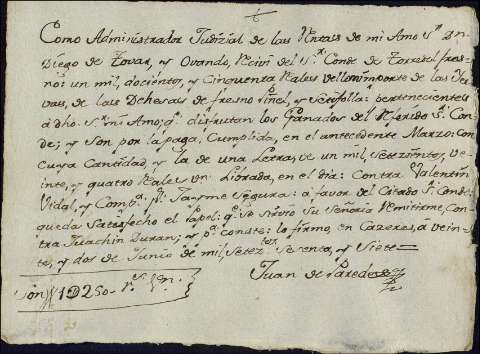 Como Administrador Judizial de las Rentas de mi Amo Sr Dn
Diego de Tovar, y Ovando, Reciví del Sr Conde de Torre del fres
no: un mil, docientos, y Cinquenta Reales vellon importe de las Yer
vas, de las Dehesas de fresno piñel, y pertenecientes
â dho Sr mi Amo; qe disfrutan los Ganados del Referido Sr Con
de; y son por la paga, Cumplida, en el antecedente Marzo: con
cuya Cantidad, y la de una Letra, de un mil, setezientos, ve
inte, y quatro Reales vn Librada, en el dia: Contra Valentin
Vidal, y Compa. pr. Jayme Segura: â favor del Citado Sr Conde:
queda satisfecho el papel: qe se sirvio su Señoria Remitirme, con
tra Juachin Duran; y pa. conste: lo firmo, en Cazeres, â vein
te, y dos de Junio de mil, setez.tos sesenta, y siete=
Son 1D250 rs. vn.
Juan de Paredes